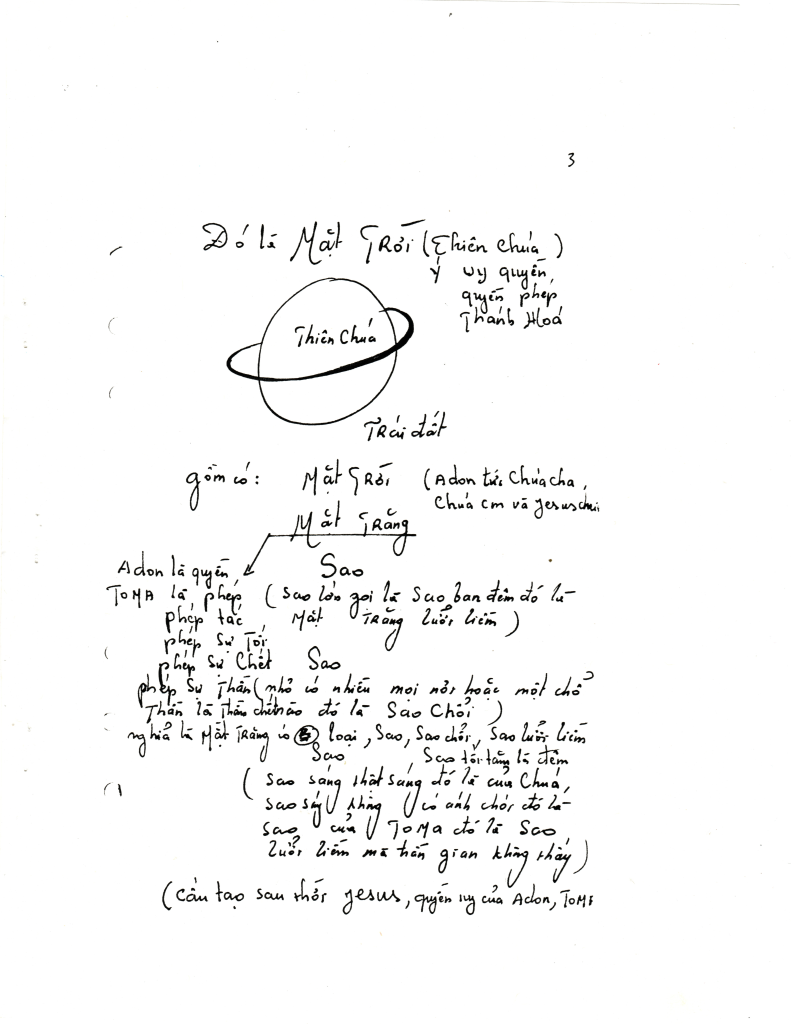 3
Đó là Mặt Trời (Thiên Chúa)
ý uy quyền,
quyền phép
Thánh Hoá
Thiên Chúa
Trái đất
gồm có: Mặt Trời (Adon tức Chúa cha,
Chúa cm và Jesus
Mặt Trăng
Adon là quyền, Sao
TOMA là phép (Sao lớn gọi là Sao ban đêm đó là
phép tắc, Mặt Trăng lưởi liềm)
phép Sự Tối
phép Sự Chết Sao
phép Sự Thần (nhỏ có nhiều mọi nơi hoặc một chổ
Thần là Thần đó là Sao Chổi)
nghĩa là Mặt Trăng có 5 loại, Sao, Sao chổi, Sao lưởi liềm
Sao, Sao tối tăm là đêm
(Sao sáng thật sáng đó là của Chúa,
sao không có ánh chớp đó là
sao của TOMA đó là Sao
lưởi liềm mà trần gian không thấy)
(Cấu tạo sau thời Jesus, quyền uy của Adon, TOMA